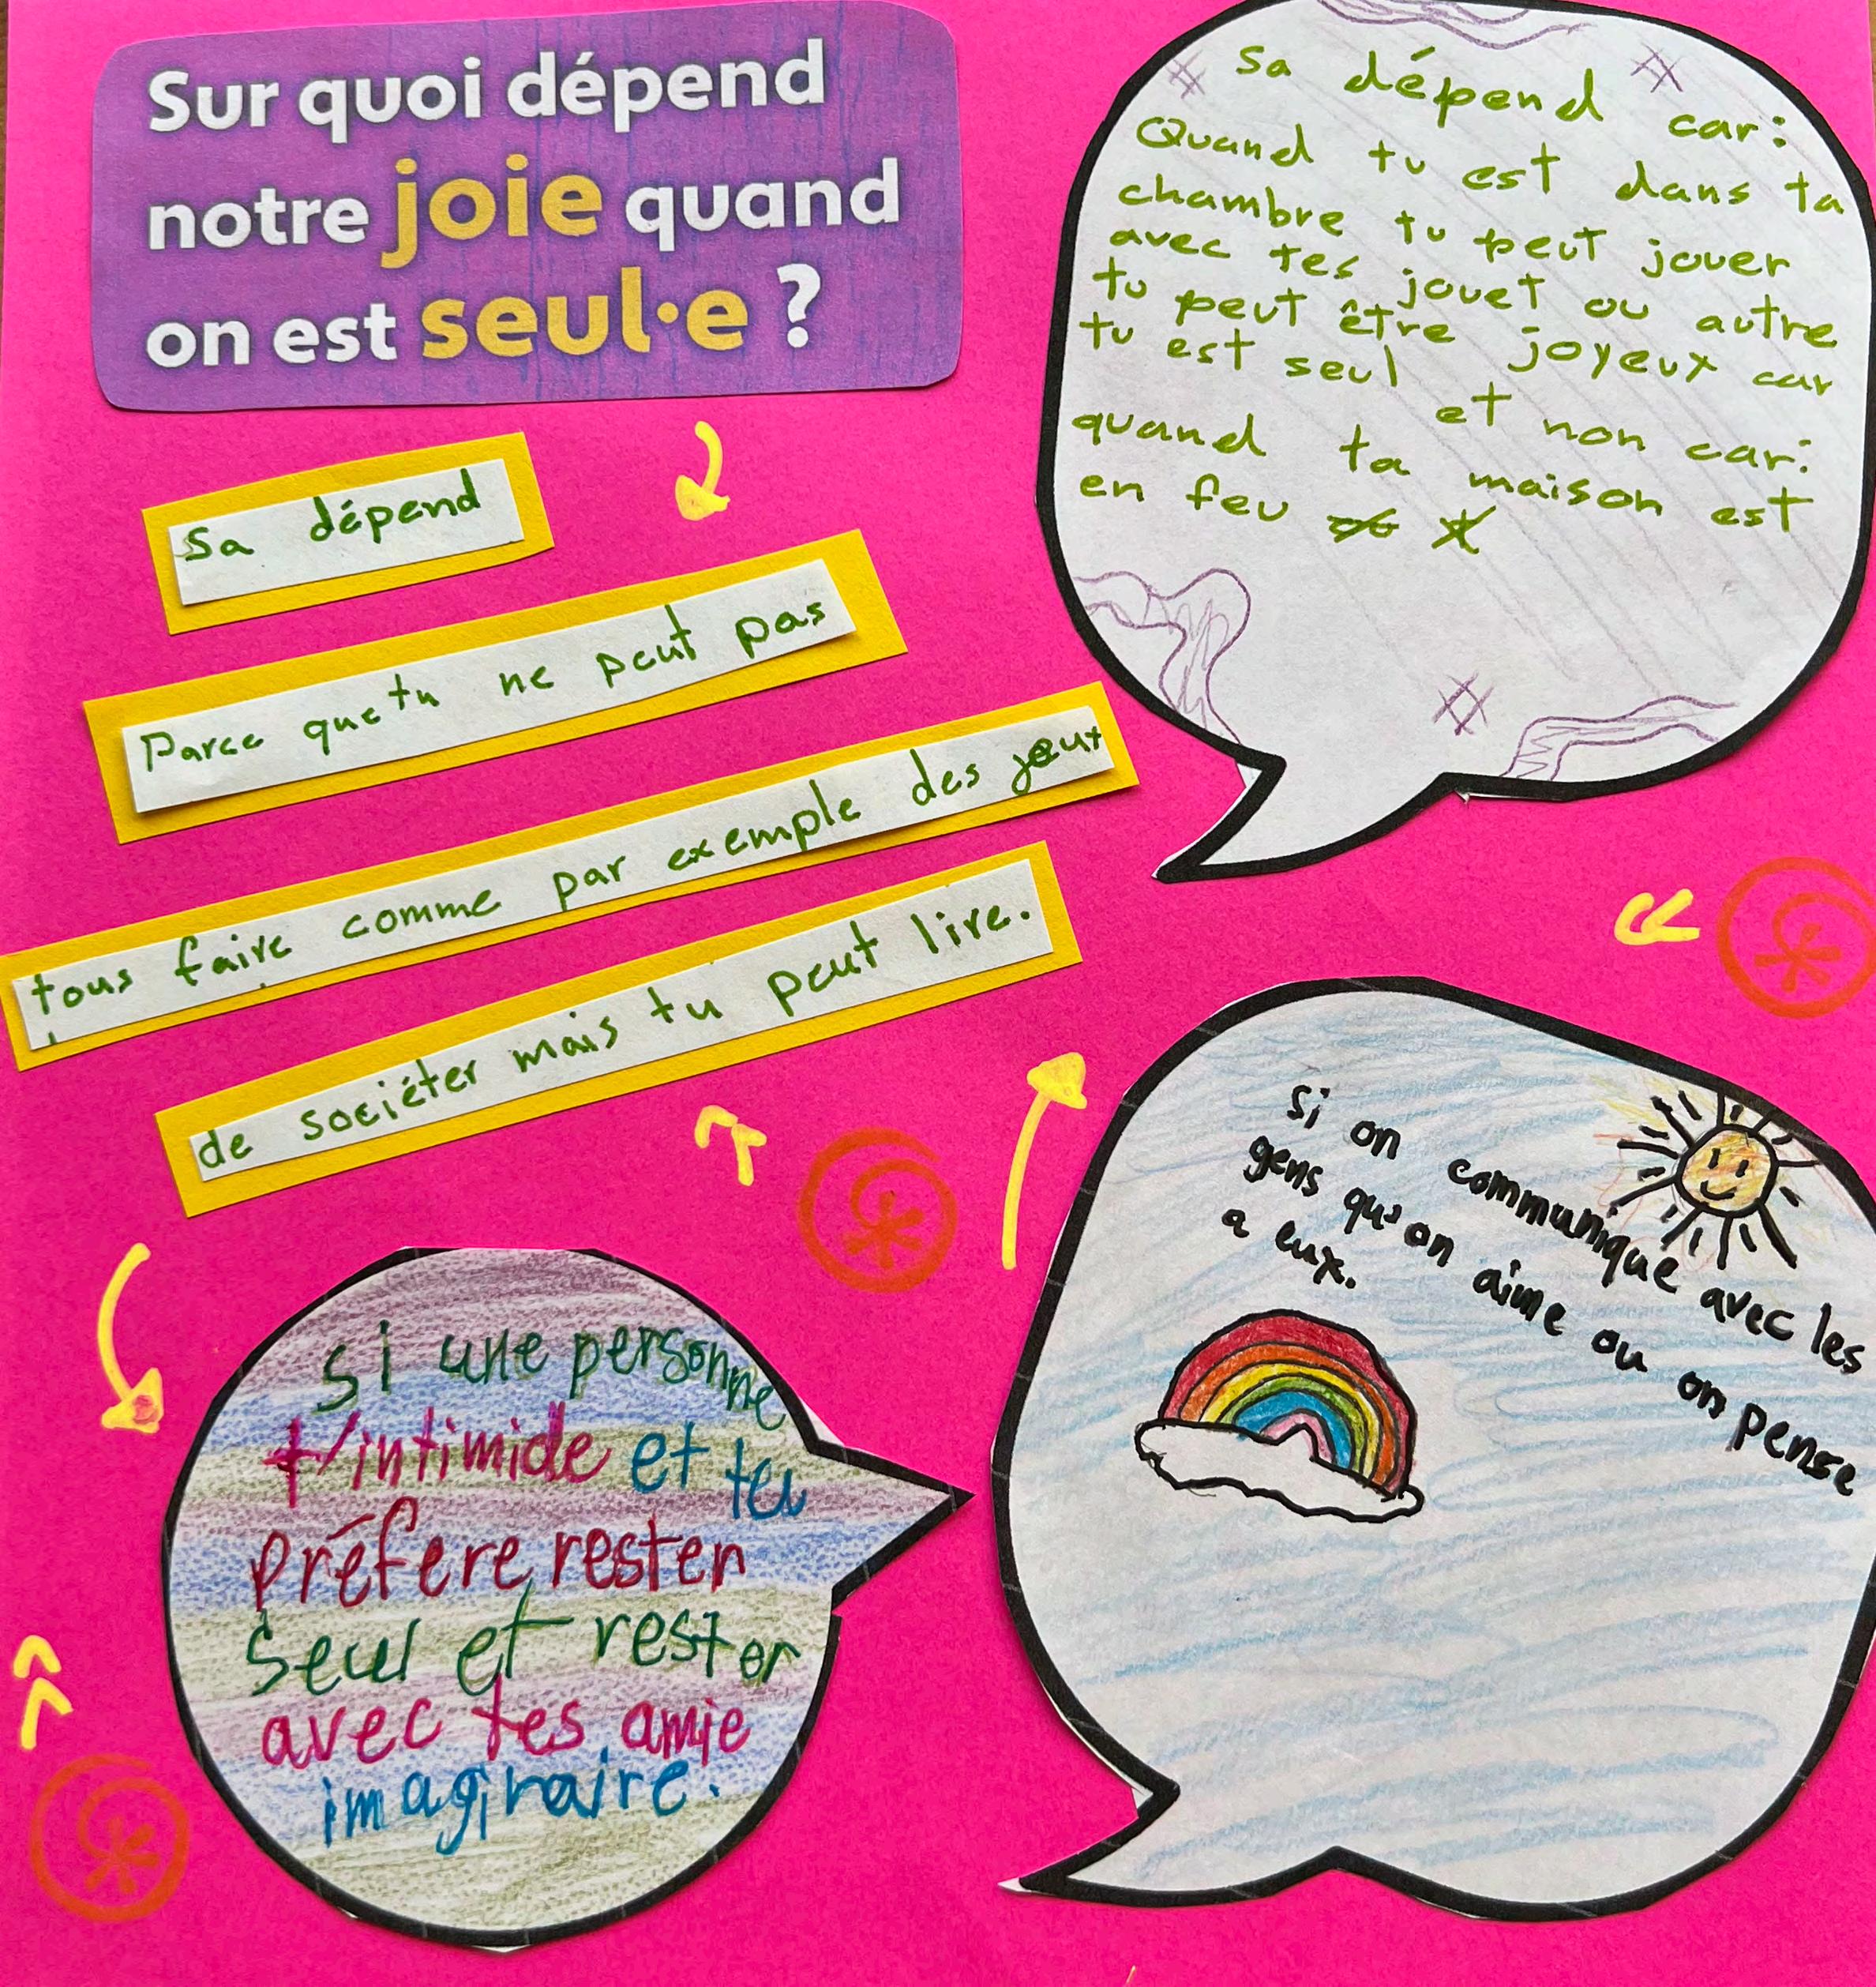 Sur quoi dépend
notre joie quand
on est seul·e ?
Sa dépend
Parce que tu ne peut pas
tous faire comme par exemple des jeux
de sociéter mais tu peut lire.
Sa dépend car:
Quand tu est dans ta
chambre tu peut jouer
avec tes jouet ou autre
tu peut être joyeux car
tu est seul et non car:
quand ta maison est
en feu
si une personne
t'intimide et tu
préfere rester
Seul et rester
avec tes amie
imaginaire.
si on communique avec les
gens qu'on aime ou on pense
a eux.